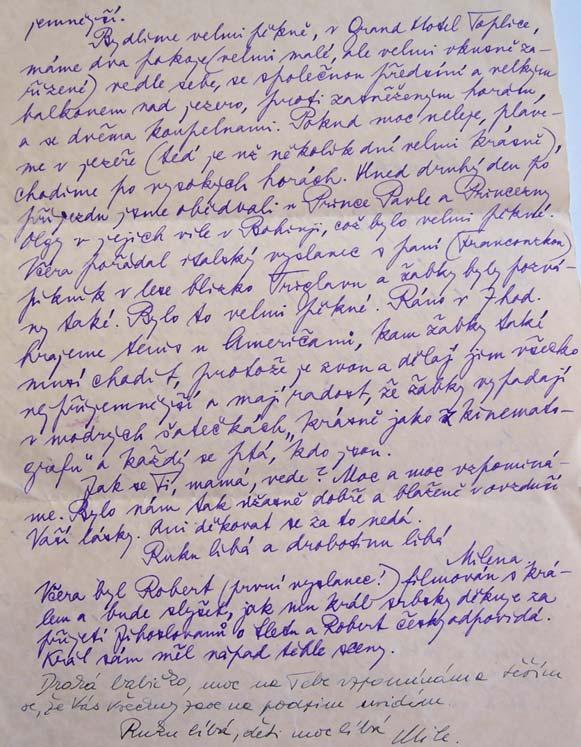 jemnější.
Bydlíme velmi pěkně, v Grand Hotel Toplice,
máme dva pokoje (velmi malé, ale velmi vkusně za-
řízené) vedle sebe, se společnou předsíní a velkým
balkonem nad jezero, proti zasněženým horám,
a se dvěma koupelnami. Pokud moc neleje, plave-
me v jezeře (teď je už několik dní velmi krásně),
chodíme po vysokých horách. Hned druhý den po
příjezdu jsme obědvali u Prince Pavle a Princezny
Olgy v jejich vile v Bohinji, což bylo velmi pěkné.
Včera pořádal italský vyslanec s paní (Francouzkou)
piknik v lese blízko Triglavu a žabky byly pozvá-
ny také. Bylo to velmi pěkné. Ráno v 7 hod.
hrajeme tenis u Američanů, kam žabky také
musí chodit, protože je zvou a dělají jim všecko
nejpříjemnější a mají radost, že žabky vypadají
v modrých šatečkách „krásně jako z kinemato-
grafu" a každý se ptá, kdo jsou.
Jak se Ti, mamá, vede? Moc a moc vzpomíná-
me. Bylo nám tak úžasně dobře a blaženě v ovzduší
Vaší lásky. Ani děkovat se za to nedá.
Ruku líbá a drobotinu líbá
Milena.
Včera byl Robert (první vyslanec!) filmován s krá-
lem a bude slyšet, jak mu král srbsky děkuje za
přijetí Jihoslovanů o sletu a Robert česky odpovídá.
Král sám měl nápad téhle sceny.
Drahá babičko, moc na Tebe vzpomínáme a těším
se, že Vás všecky zase na podzim uvidím.
Ruku líbá, děti moc líbá Mile.